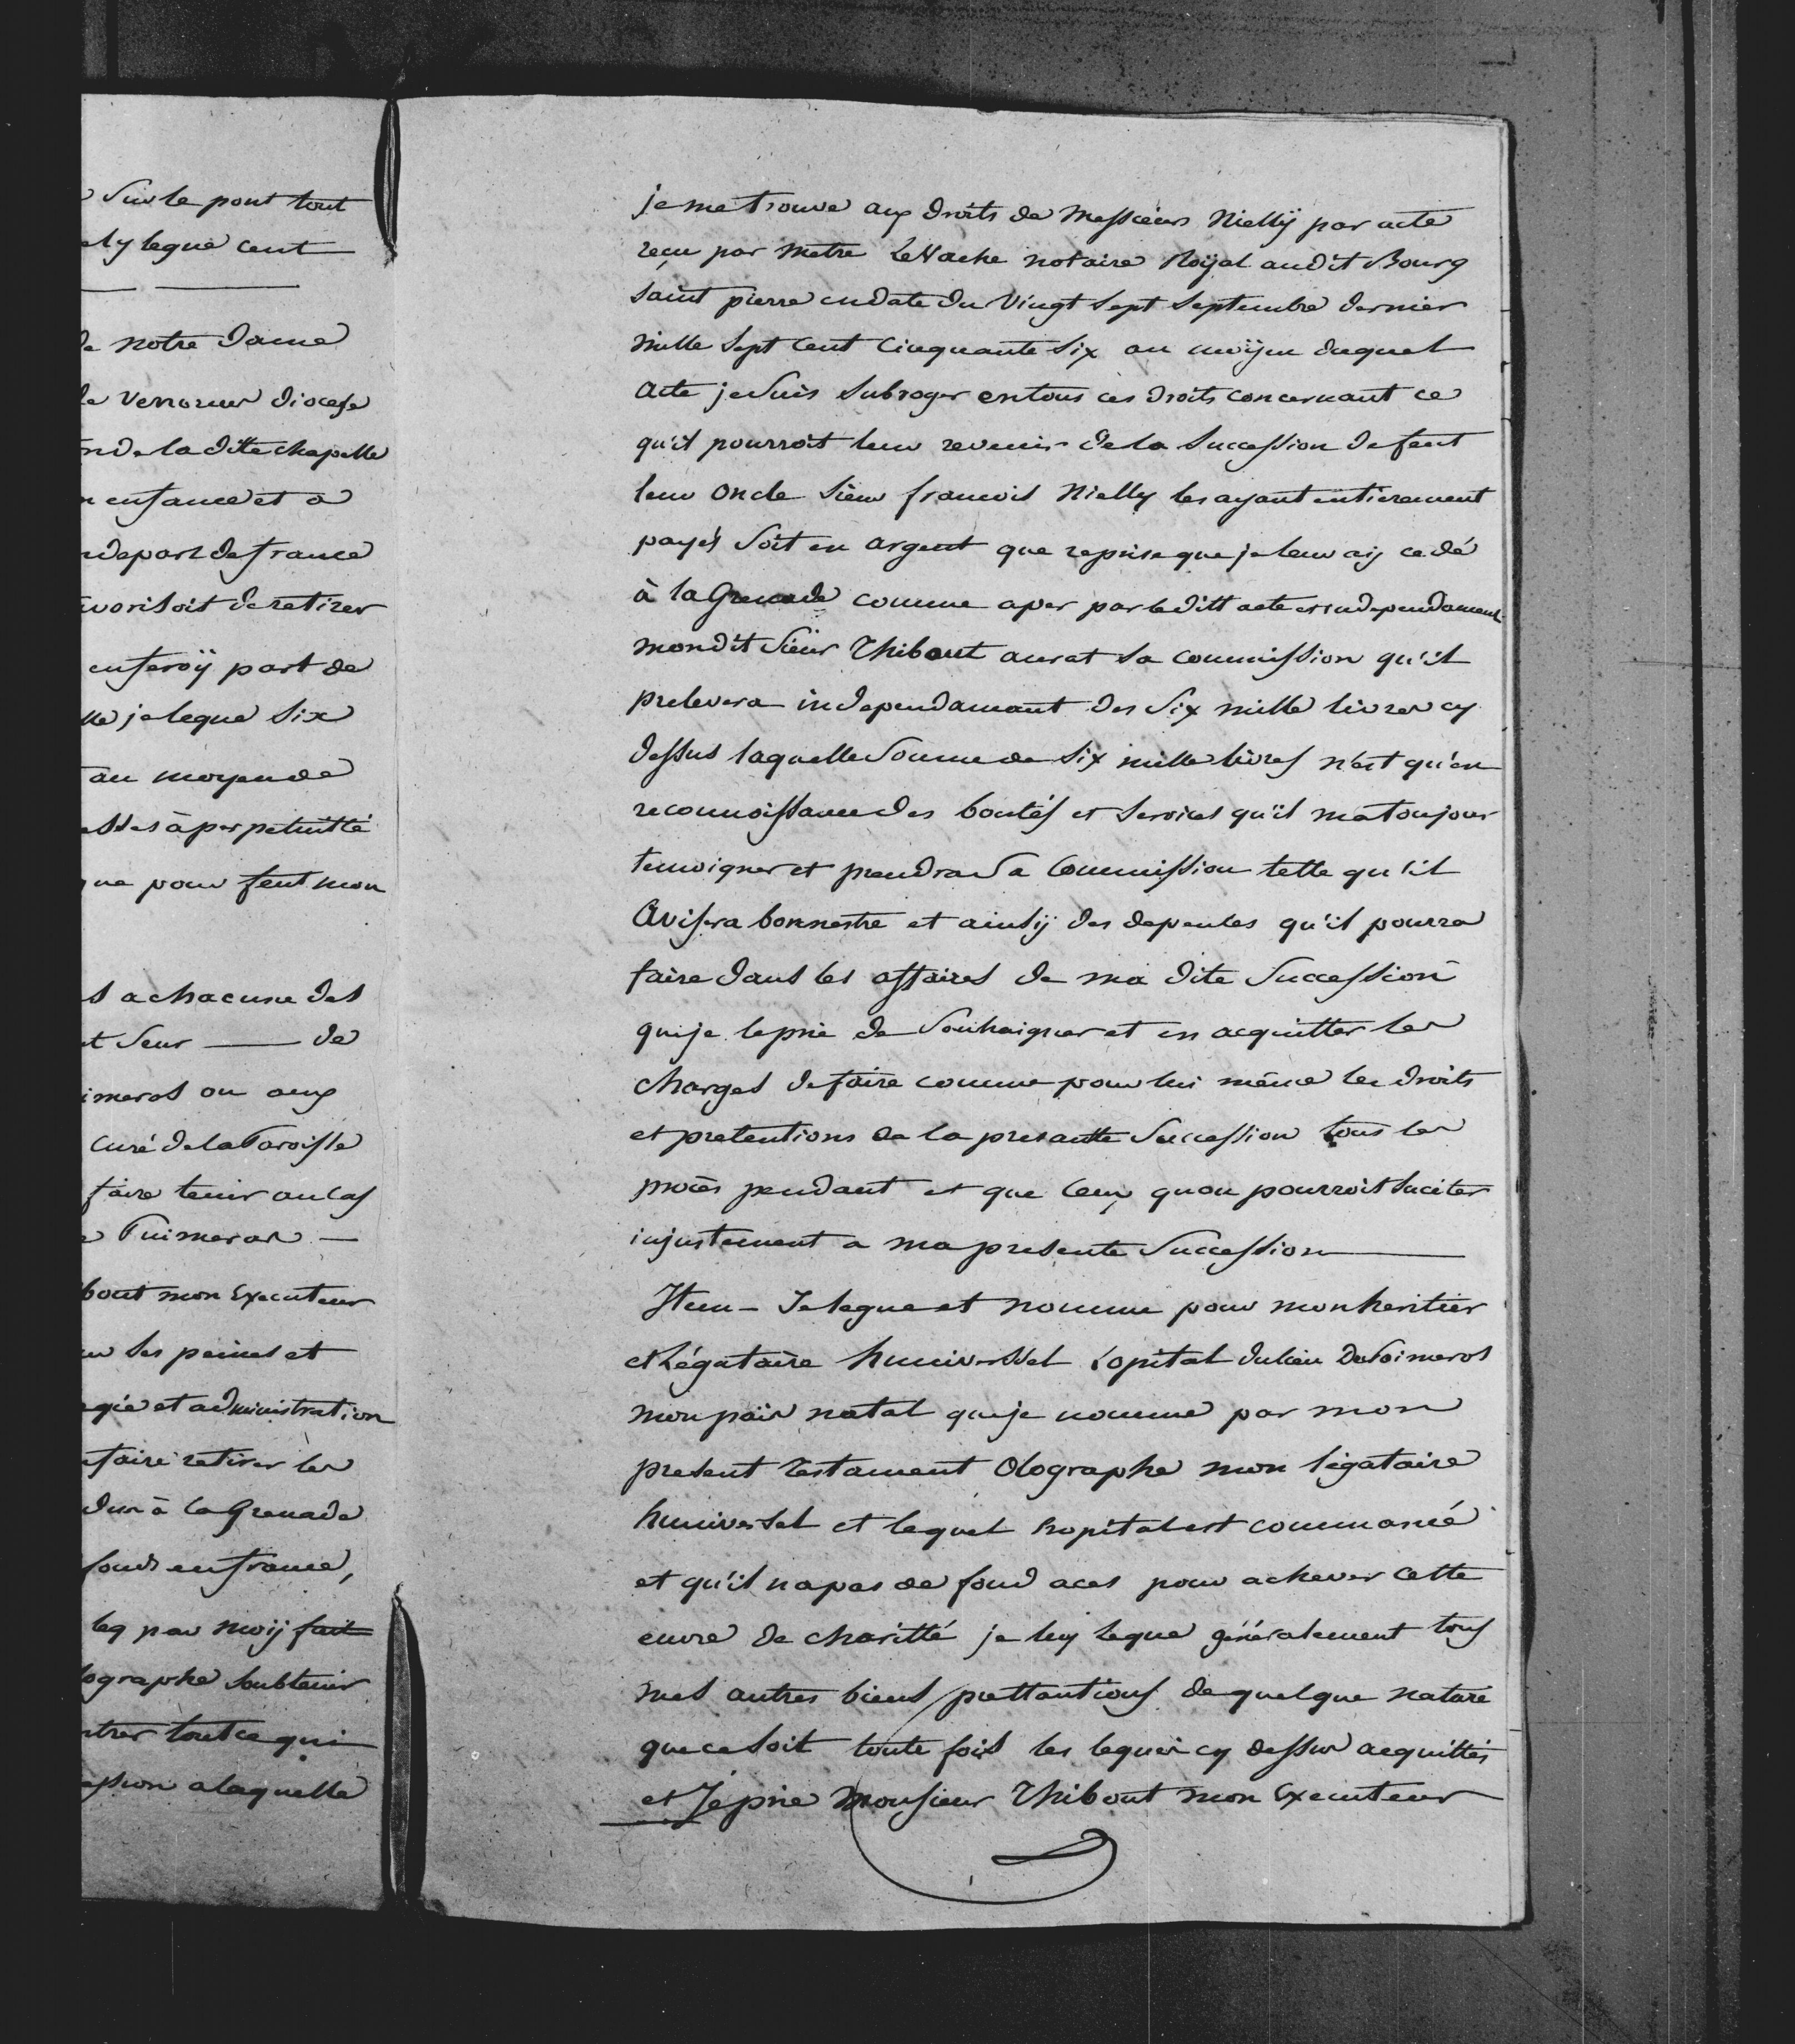 sur le pont tout
ly legue cent
notre dame
diocese
de la dite chapelle
enfance et a
depart de france
de retirer
part de
je legue Six
au moyen de
à perpetuitté
pour feut mon
a chacune des
Seur — de
ou aux
curé de la Paroisse
faire tenir au cas
Puimeras —
mon Executeur
ses peines et
et administration
faire retirer les
à la Grenade
en france,
leg par moij fait
soubtenir
tout ce qui
a laquelle
je me trouve aux droits de Messieurs Niellÿ par acte
reçu par Metre LeVache notaire Roÿal audit Bourg
saint pierre en date du Vingt sept Septembre dernier
mille Sept Cent Cinquante Six au moÿen duquel
acte je suis Subroger en tous ces droits concernant ce
qu'il pourroit leur revenir de la Succession de feut
leur oncle Sieur francois Nielly les ayant entierement
payés Soit en argent que reprise que je leur aij cedé
à la Grenade comme aper par le ditt acte et independament
mondit Sieur Thibout aurat sa commission qu'il
prelevera independamant des Six mille livres cy
dessus laquelle Somme de Six mille livres n'est qu'en
reconnoissance des bontés et services qu'il ma toujour
temoigner et prendra Sa Commission telle qu'il
avisera bonnestre et ainsij des depenses qu'il pourra
faire dans les affaires de ma dite Succession
que je le prie de Souhaigner et en acquitter les
charges de faire comme pour lui même les droits
et pretentions de la presantte Succession tous les
procès pendant et que ceux quon pourroit suciter
injustement a ma presente Succession —
Item — Je legue et nomme pour mon heritier
et Légataire huniverssel Lopital du lieu De Poimeros
mon païs natal que je nomme par mon
present testament Olographe mon légataire
huniversel et lequel hopital est commancé
et qu'il n'a pas de fond aces pour achever cette
euvre de charitté je luy legue généralement tous
mes autres biens prettantions de quelque nature
que ce soit toute fois les legs cy dessus acquittés
et Je prie Monsieur Thibout mon Executeur